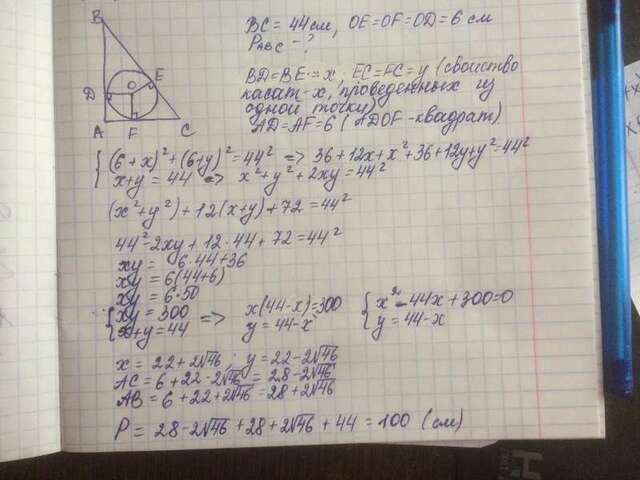 B
O
E
D
A
F
C
BC = 44 см, OE=OF=OD=6 см
P_ABC - ?
BD=BE=x, EC=FC=y (свойство
касат-х, проведенных из
одной точки)
AD=AF=6 (ADOF-квадрат).
{ (6+x)²+(6+y)²=44² => 36+12x+x²+36+12y+y²=44²
x+y=44 => x²+y²+2xy=44²
(x²+y²)+12(x+y)+72=44²
44²-2xy+12·44+72=44²
xy = 6·44+36
xy = 6(44+6)
xy = 6·50
{ xy = 300 => x(44-x)=300 { x²-44x+300=0
x+y=44 y=44-x y=44-x
x = 22+2√46; y=22-2√46
AC = 6+22-2√46 = 28-2√46
AB = 6+22+2√46 = 28+2√46
P = 28-2√46+28+2√46+44=100 (см)